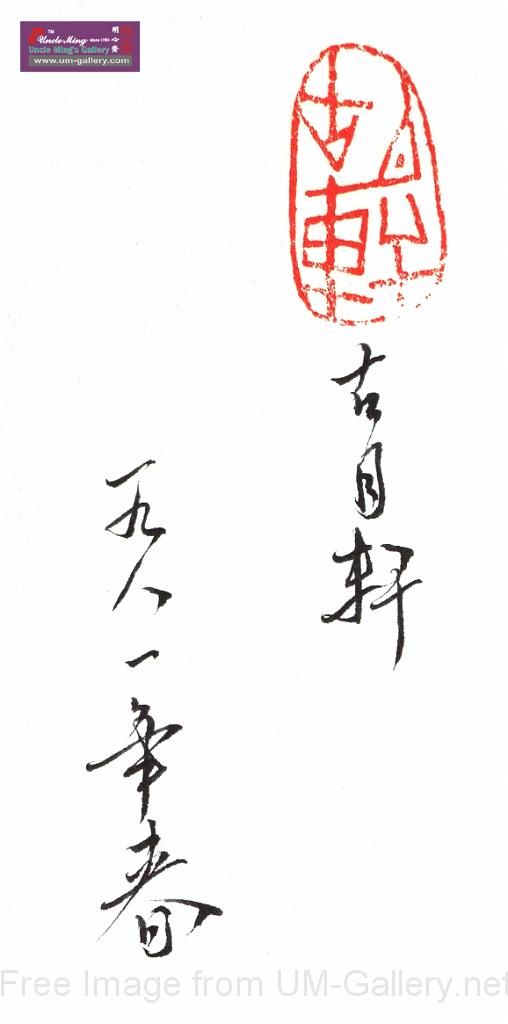 Uncle Ming since 1984
Uncle Ming's Gallery
www.um-gallery.com
明心齋
古月軒
古月軒
一九八一年春
Free Image from UM-Gallery.net